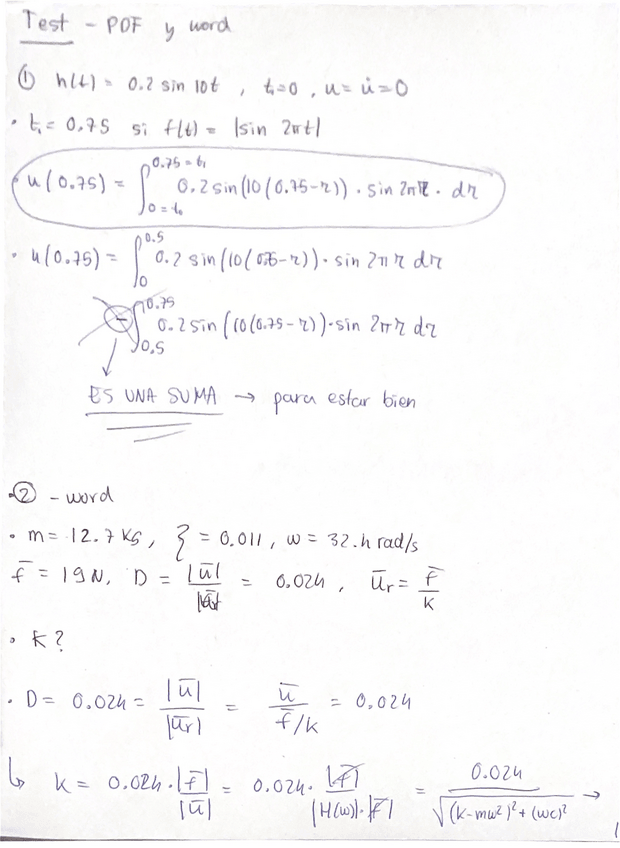 Test - PDF y word
① h(t) = 0.2 sin 10t , t₀=0 , u = u̇ = 0
• t₁ = 0.75 si f(t) = |sin 2πt|
• u(0.75) = ∫_{0=t₀}^{0.75=t₁} 0.2 sin(10(0.75-τ)) · sin 2πτ · dτ
• u(0.75) = ∫_0^{0.5} 0.2 sin(10(0.75-τ)) · sin 2πτ dτ
- ∫_{0.5}^{0.75} 0.2 sin(10(0.75-τ)) · sin 2πτ dτ
ES UNA SUMA → para estar bien
② - word
• m = 12.7 kg, ξ = 0.011, ω = 32.4 rad/s
f̄ = 19N, D = |ū| / |ūr| = 0.024, ūr = f̄/k
• k?
• D = 0.024 = |ū| / |ūr| = ū / (f̄/k) = 0.024
↳ k = 0.024 · |f̄| / |ū| = 0.024 · |f̄| / (|H(ω)|·|f̄|) = 0.024 / √((k-mω²)²+(ωc)²) →
1